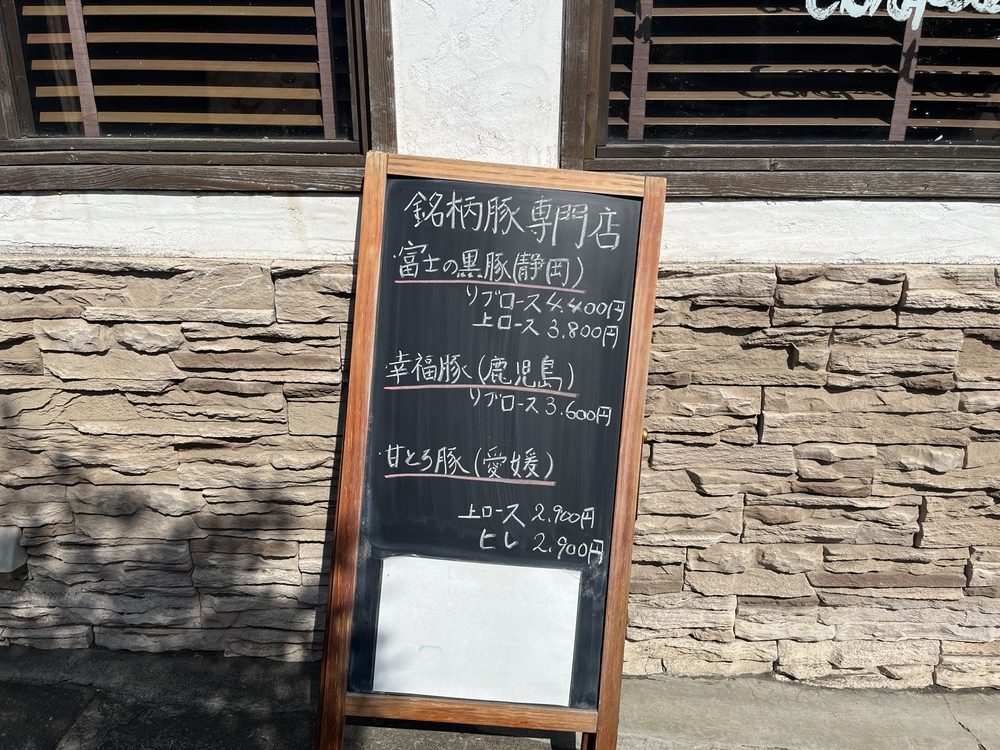 銘柄豚専門店
富士の黒豚(静岡)
リブロース4.400円
上ロース3.800円
幸福豚(鹿児島)
リブロース3.600円
甘とろ豚(愛媛)
上ロース 2.900円
ヒレ 2.900円